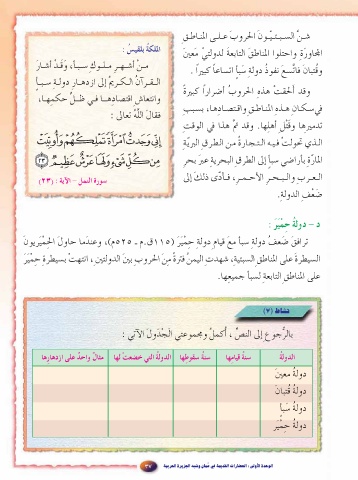 شنَّ السبئيُّونَ الحروبَ على المناطقِ
المجاورَةِ واحتلوا المناطقَ التابعةَ لدولتيْ مَعينَ
وقُتبانَ فاتَّسعَ نفوذُ دولةِ سبأ اتساعاً كبيراً .
وقد ألحقتْ هذه الحروبُ أضراراً كبيرةً
في سكانِ هذه المناطقِ واقتصادِها، بسببِ
تدميرِها وقَتْلِ أهلِها. وقد تمَّ هذا في الوقتِ
الذي تحولتْ فيه التجارةُ من الطرقِ البريّةِ
المارّةِ بأراضي سبأ إلى الطرقِ البحريةِ عبرَ بحرِ
العربِ والبحرِ الأحمرِ، فأدّى ذلك إلى
ضَعْفِ الدولةِ.
الملكَةُ بلقيسُ :
منْ أشهرِ ملوكِ سبأ، وَقدْ أشارَ
القرآنُ الكريمُ إلى ازدهارِ دولةِ سبأ
وانتعاشِ اقتصادِها في ظلِّ حكمِها،
فقالَ اللهُ تعالى :
إِنِّي وَجَدتُّ امْرَأَةً تَمْلِكُهُمْ وَأُوتِيَتْ
مِن كُلِّ شَيْءٍ وَلَهَا عَرْشٌ عَظِيمٌ ﴿٢٣﴾
سورة النمل - الآية : (٢٣)
د - دولةُ حِمْيَرَ :
ترافقَ ضَعفُ دولةِ سبأ معَ قيامِ دولةِ حِمْيَرَ (١١٥ق.م - ٥٢٥م)، وعندَما حاولَ الحِمْيَريونَ
السيطرةَ على المناطقِ السبئيةِ، شهدتِ اليمنُ فترةً مِنَ الحروبِ بينَ الدولتينِ ، انتهتْ بسيطرةِ حِمْيَرَ
على المناطقِ التابعةِ لسبأ جميعِها.
نشاط (٧)
بالرُّجوعِ إلى النصِّ، أكملْ ومجموعتي الجَدْوَلَ الآتيَ :
الدولةُ سنةُ قيامِها سنةُ سقوطِها الدولةُ التي خضعتْ لها مثالٌ واحدٌ على ازدهارِها
دولةُ معينَ
دولةُ قُتبانَ
دولةُ سبأ
دولةُ حِمْيَرَ
الوحدة الأولى : الحضارات القديمة في عُمان وشبه الجزيرة العربية
٣٧